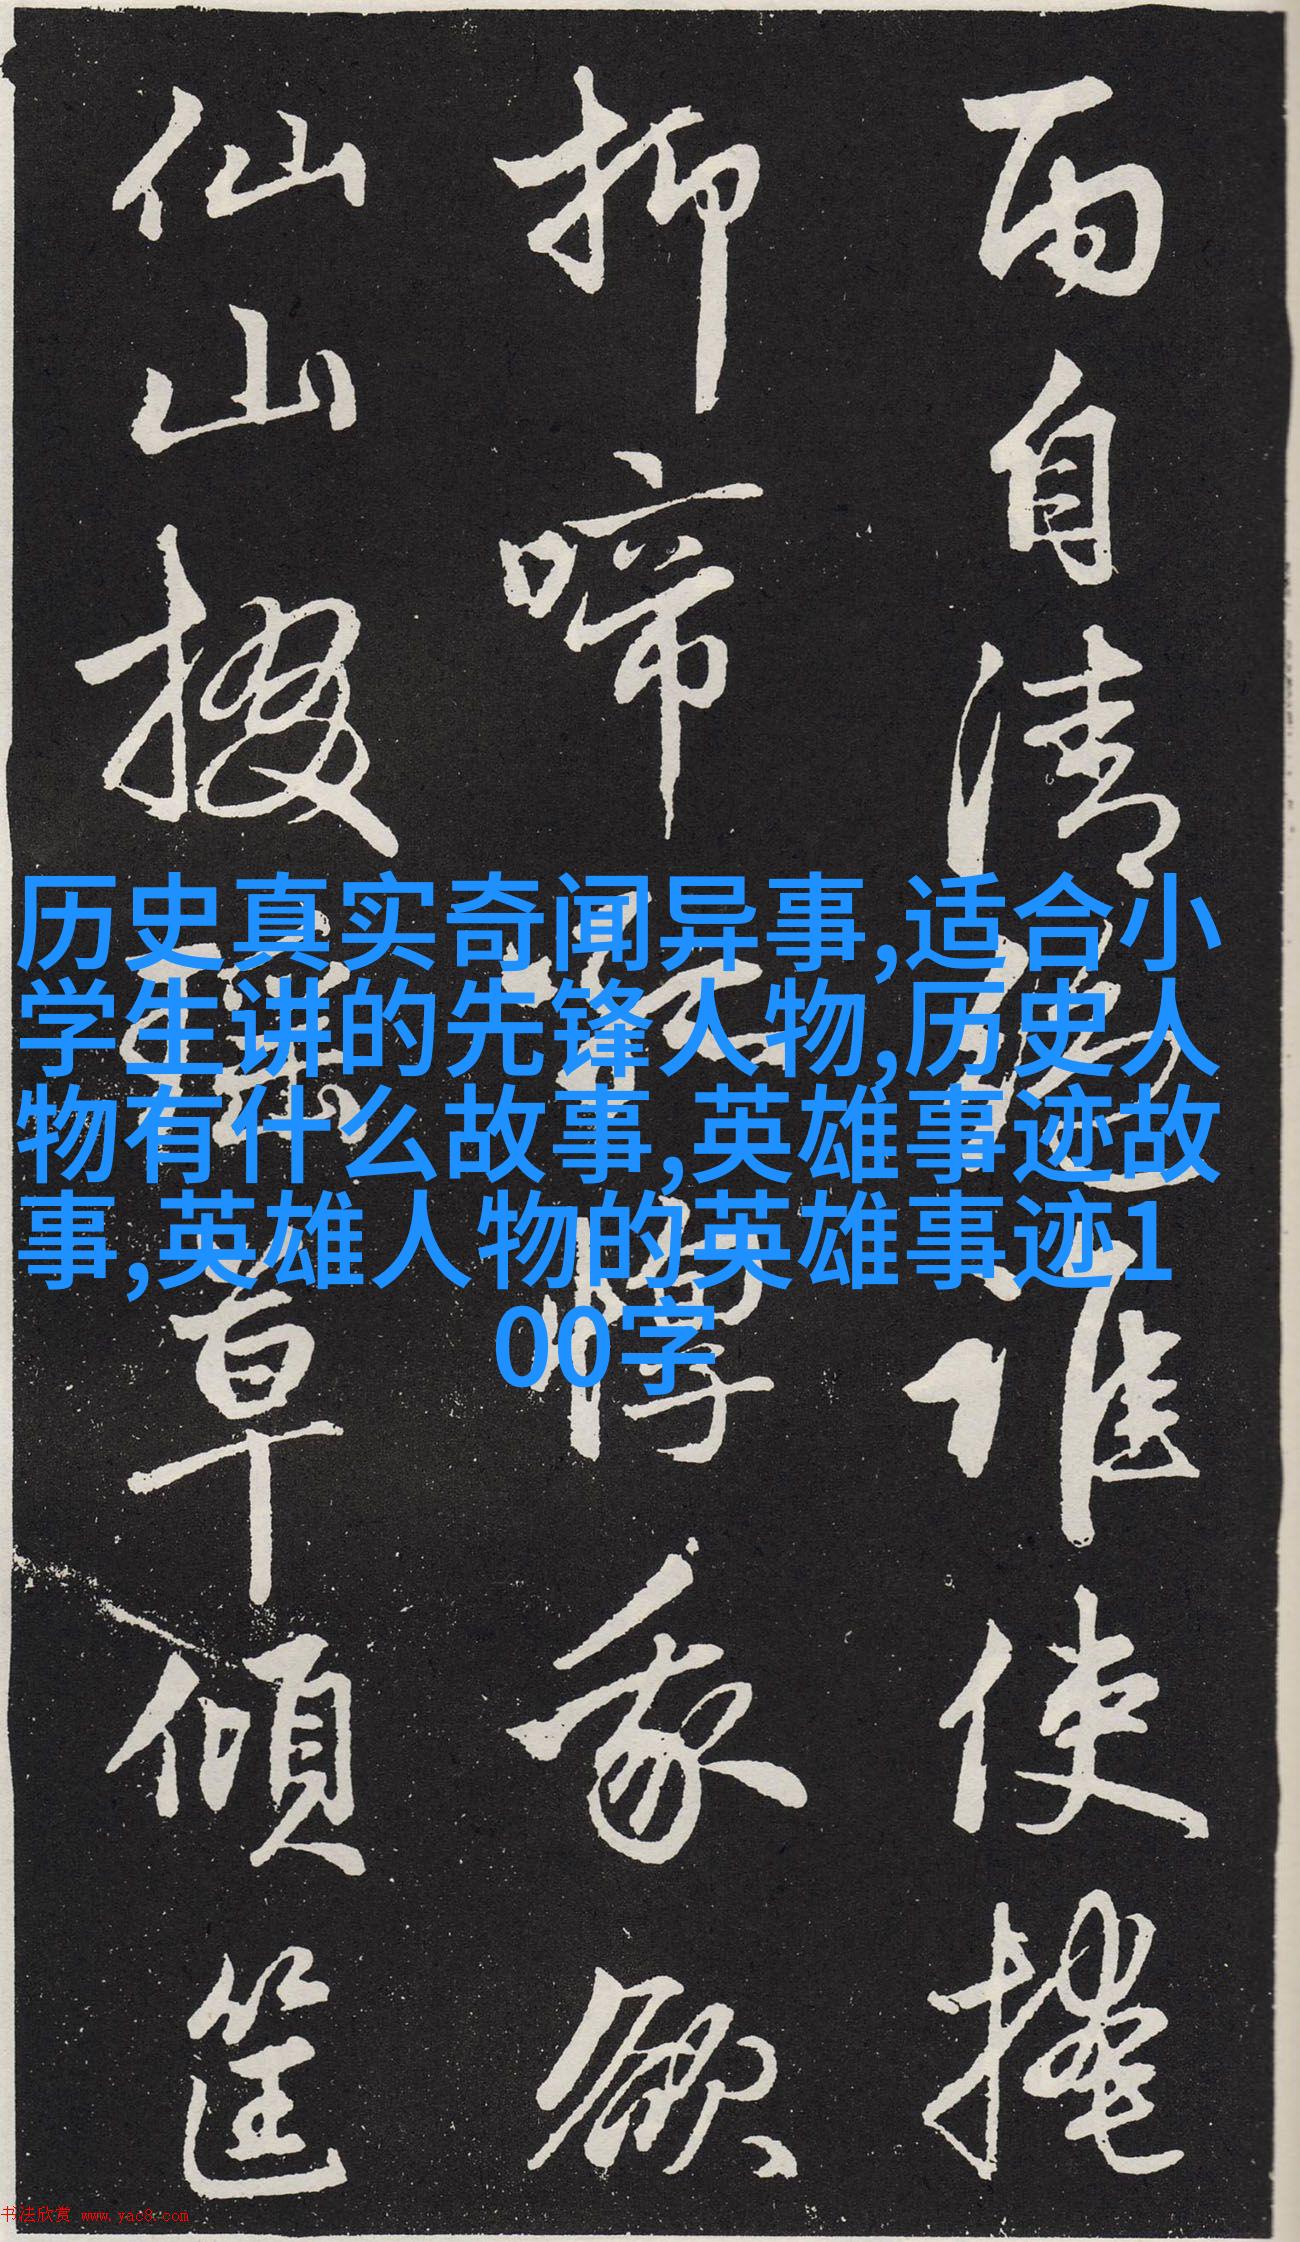 而自清 谁使掩
抑啼 我欲
仙山掇瑶草倾筐
历史真实奇闻异事,适合小
学生讲的先锋人物,历史人
物有什么故事,英雄事迹故
事,英雄人物的英雄事迹1
00字
书法欣赏 www.yac8.com